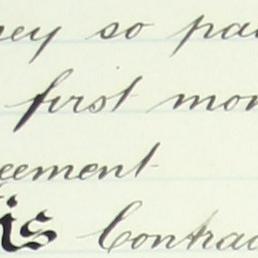 ney so paid
first mon
eement
is Contrac